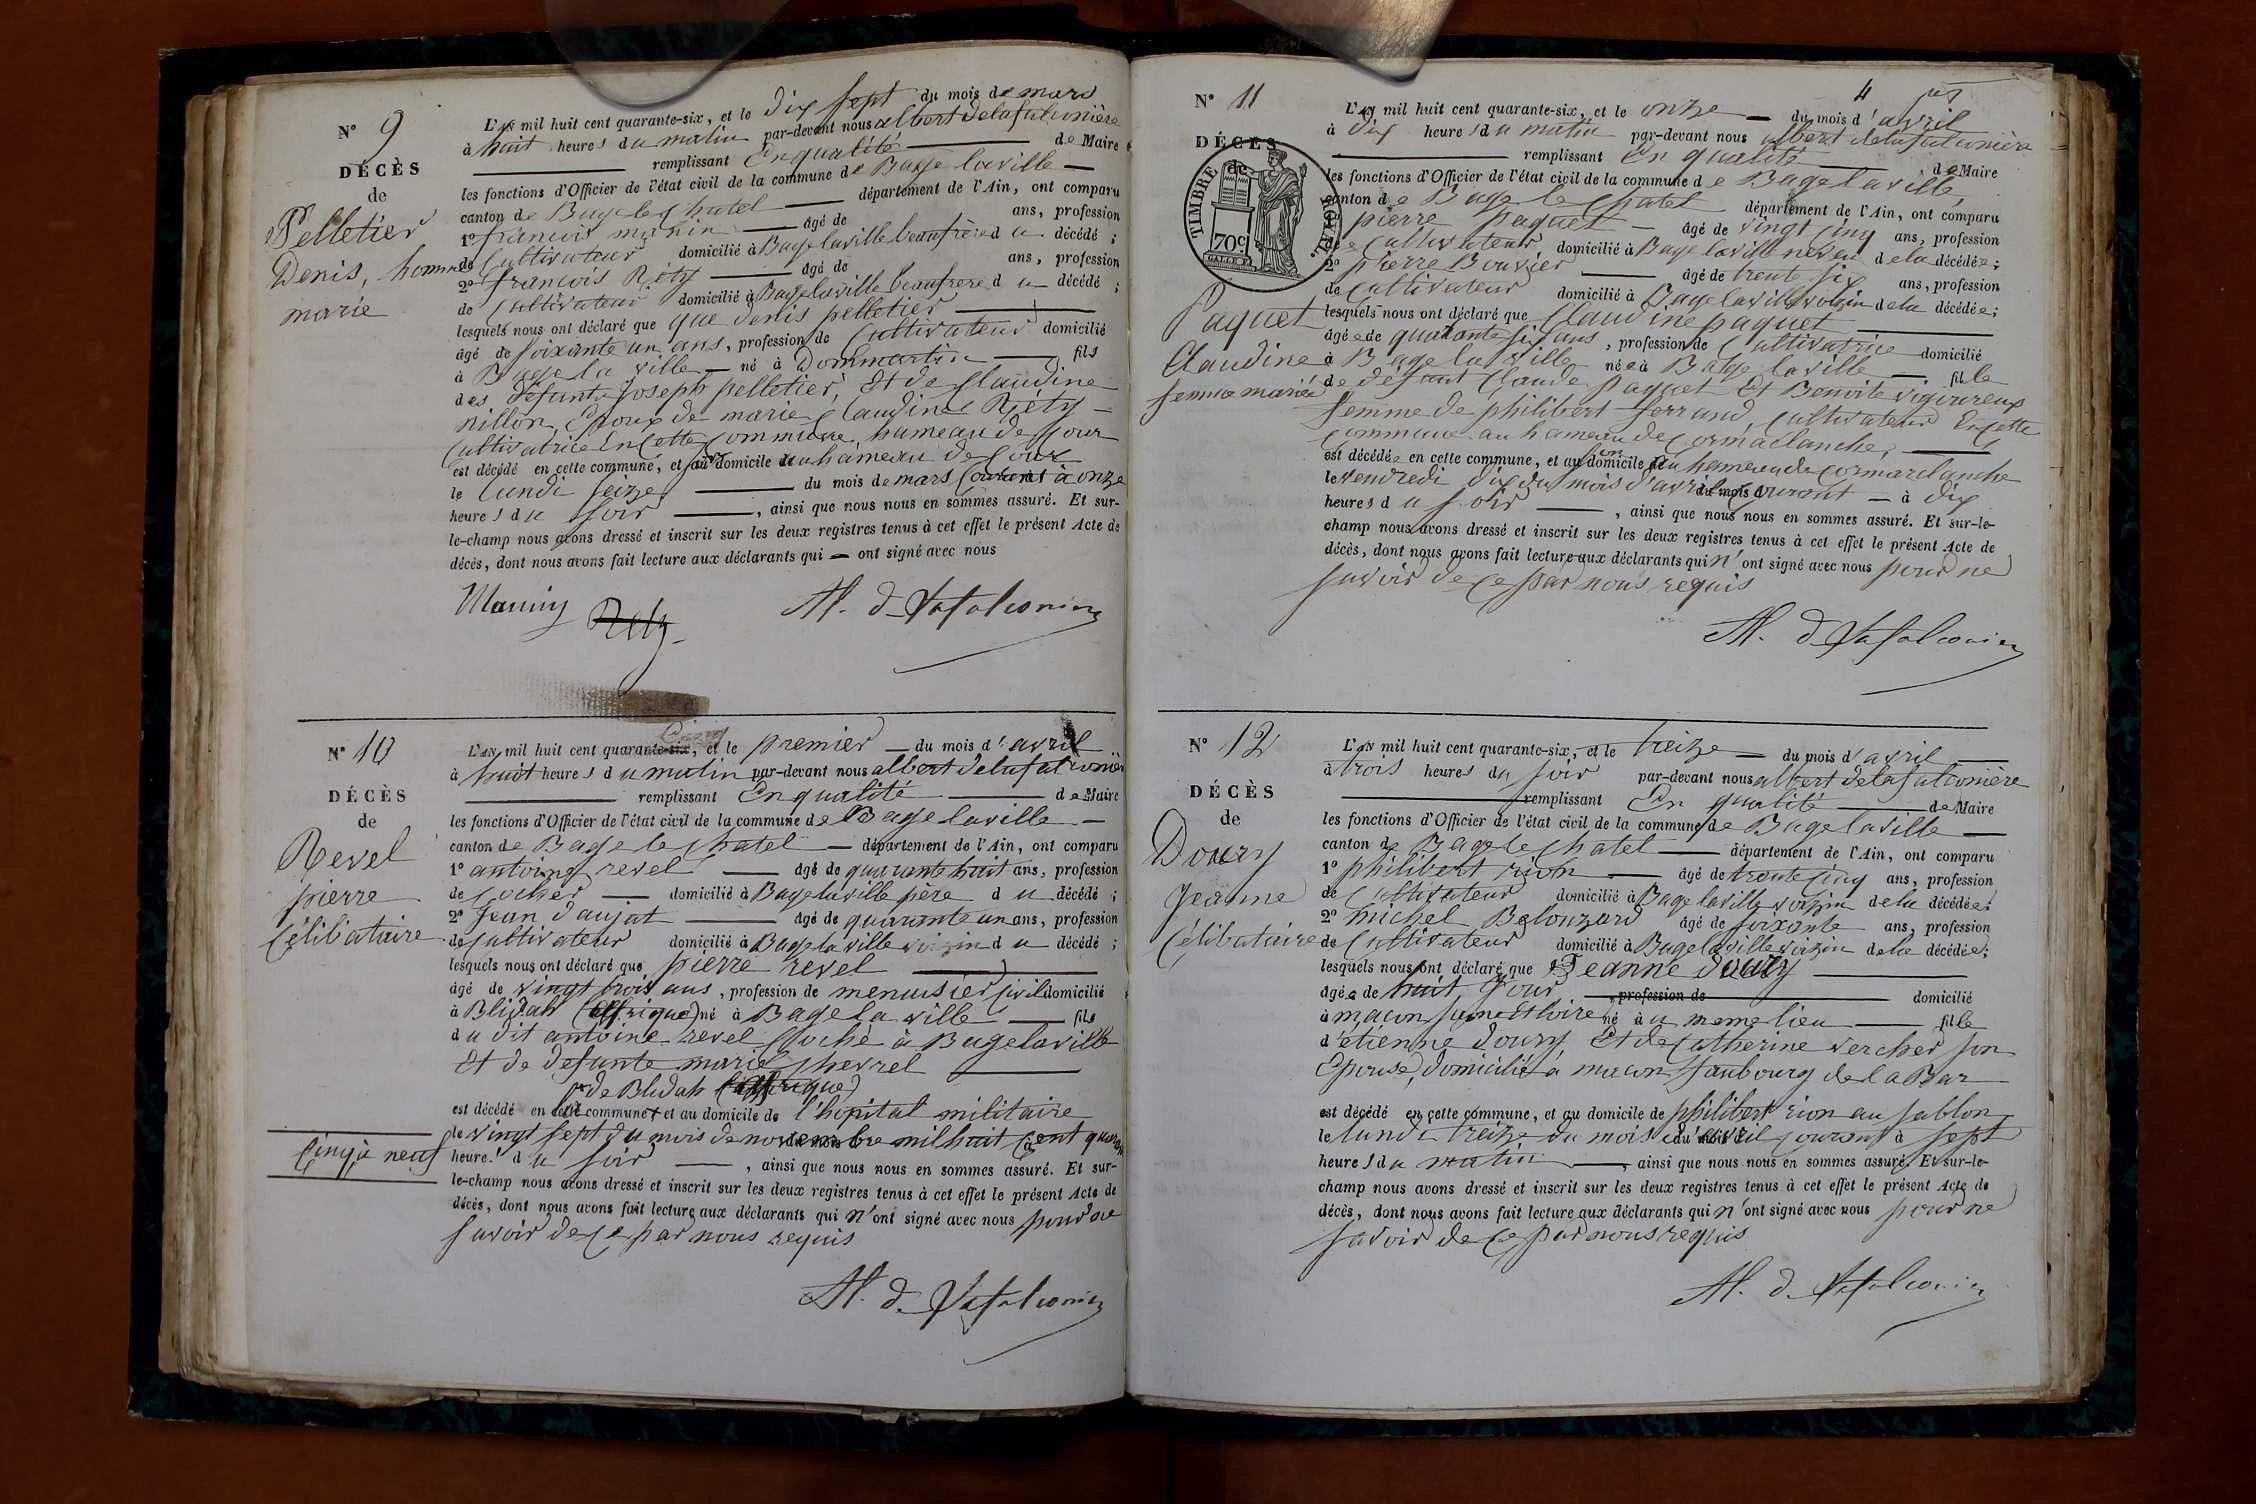 N° 9
DÉCÈS
de
Pelletier
Denis, homme
marié
L'AN mil huit cent quarante-six, et le dix sept du mois de mars
à huit heures du matin par-devant nous albert delafalconière
remplissant En qualité de Maire
les fonctions d'Officier de l'état civil de la commune de Bage laville
canton de Bage le chatel département de l'Ain, ont comparu
1° francois manin âgé de ans, profession
de Cultivateur domicilié à Bage laville beaufrère du décédé ;
2° francois Réty âgé de ans, profession
de Cultivateur domicilié à Bage laville beaufrère du décédé ;
lesquels nous ont déclaré que que denis pelletier
âgé de soixante un ans, profession de Cultivateur domicilié
à Bage la ville né à Dommartin fils
des défunts Joseph pelletier, Et de Claudine
nillon, Epoux de marie Claudine Réty
Cultivatrice En Cette Commune, hameau de Cour
est décédé en cette commune, et au domicile au hameau de Cour
le lundi seize du mois de mars Courant à onze
heures du soir, ainsi que nous nous en sommes assuré. Et sur-
le-champ nous avons dressé et inscrit sur les deux registres tenus à cet effet le présent Acte de
décès, dont nous avons fait lecture aux déclarants qui ont signé avec nous
Manin Réty Al. d. Lafalconière
N° 10
DÉCÈS
de
Revel
pierre
Célibataire
Cinq à neuf
L'AN mil huit cent quarante-six, et le premier du mois d'avril
à huit heures du matin par-devant nous albert delafalconière
remplissant En qualité de Maire
les fonctions d'Officier de l'état civil de la commune de Bage laville
canton de Bage le chatel département de l'Ain, ont comparu
1° antoine revel âgé de quarante huit ans, profession
de Cocher domicilié à Bage laville père du décédé ;
2° Jean daujat âgé de quarante un ans, profession
de Cultivateur domicilié à Bage la ville voizin du décédé ;
lesquels nous ont déclaré que pierre revel
âgé de vingt trois ans, profession de menuisier civil domicilié
à Blidah (affrique) né à Bage la ville fils
du dit antoine revel Coché à Bage laville
Et de defunte marie chevrel
de Blidah (affrique)
est décédé en cette commune et au domicile de l'hopital militaire
le vingt sept du mois de novembre mil huit Cent quaran
heures du soir, ainsi que nous nous en sommes assuré. Et sur-
le-champ nous avons dressé et inscrit sur les deux registres tenus à cet effet le présent Acte de
décès, dont nous avons fait lecture aux déclarants qui n'ont signé avec nous pour ne
savoir de Ce par nous requis
Al. d. Lafalconière
4
N° 11
DÉCÈS
de
TIMBRE ROYAL
70c
Paquet
Claudine
femme mariée
L'AN mil huit cent quarante-six, et le onze du mois d'avril
à dix heures du matin par-devant nous albert delafalconière
remplissant En qualité de Maire
les fonctions d'Officier de l'état civil de la commune de Bage laville,
canton de Bage le chatel département de l'Ain, ont comparu
1° pierre paquet âgé de vingt cinq ans, profession
de Cultivateur domicilié à Bage laville neveu de la décédée ;
2° pierre Bouvier âgé de trente six ans, profession
de Cultivateur domicilié à Bage laville voizin de la décédée ;
lesquels nous ont déclaré que Claudine paquet
âgée de quarante six ans, profession de Cultivatrice domicilié
à Bage la ville née à Bage la ville fille
de défunt Claude paquet Et Benoite vigoureux
femme de philibert ferrand, Cultivateur En Cette
Commune au hameau de Cormaclanche,
est décédée en cette commune, et au domicile au hameau de Cormarclanche
le vendredi dix du mois d'avril Courant à dix
heures du soir, ainsi que nous nous en sommes assuré. Et sur-le-
champ nous avons dressé et inscrit sur les deux registres tenus à cet effet le présent Acte de
décès, dont nous avons fait lecture aux déclarants qui n'ont signé avec nous pour ne
savoir de Ce par nous requis
Al. d. Lafalconière
N° 12
DÉCÈS
de
Doury
Jeanne
Célibataire
L'AN mil huit cent quarante-six, et le treize du mois d'avril
à trois heures du soir par-devant nous albert delafalconière
remplissant En qualité de Maire
les fonctions d'Officier de l'état civil de la commune de Bage laville
canton de Bage le chatel département de l'Ain, ont comparu
1° philibert rion âgé de trente cinq ans, profession
de Cultivateur domicilié à Bage laville voizin de la décédée ;
2° michel Belouzard âgé de soixante ans, profession
de Cultivateur domicilié à Bage laville voizin de la décédée ;
lesquels nous ont déclaré que Jeanne doury
âgée de huit Jour, profession de domicilié
à macon saone Et loire, né au meme lieu fille
d'étienne doury Et de Catherine vercher son
Epouse, domicilié à macon faubourg de la Bar
est décédée en cette commune, et au domicile de philibert rion au sablon
le lundi treize du mois d'avril Courant à sept
heures du matin, ainsi que nous nous en sommes assuré. Et sur-le-
champ nous avons dressé et inscrit sur les deux registres tenus à cet effet le présent Acte de
décès, dont nous avons fait lecture aux déclarants qui n'ont signé avec nous pour ne
savoir de Ce par nous requis
Al. d. Lafalconière